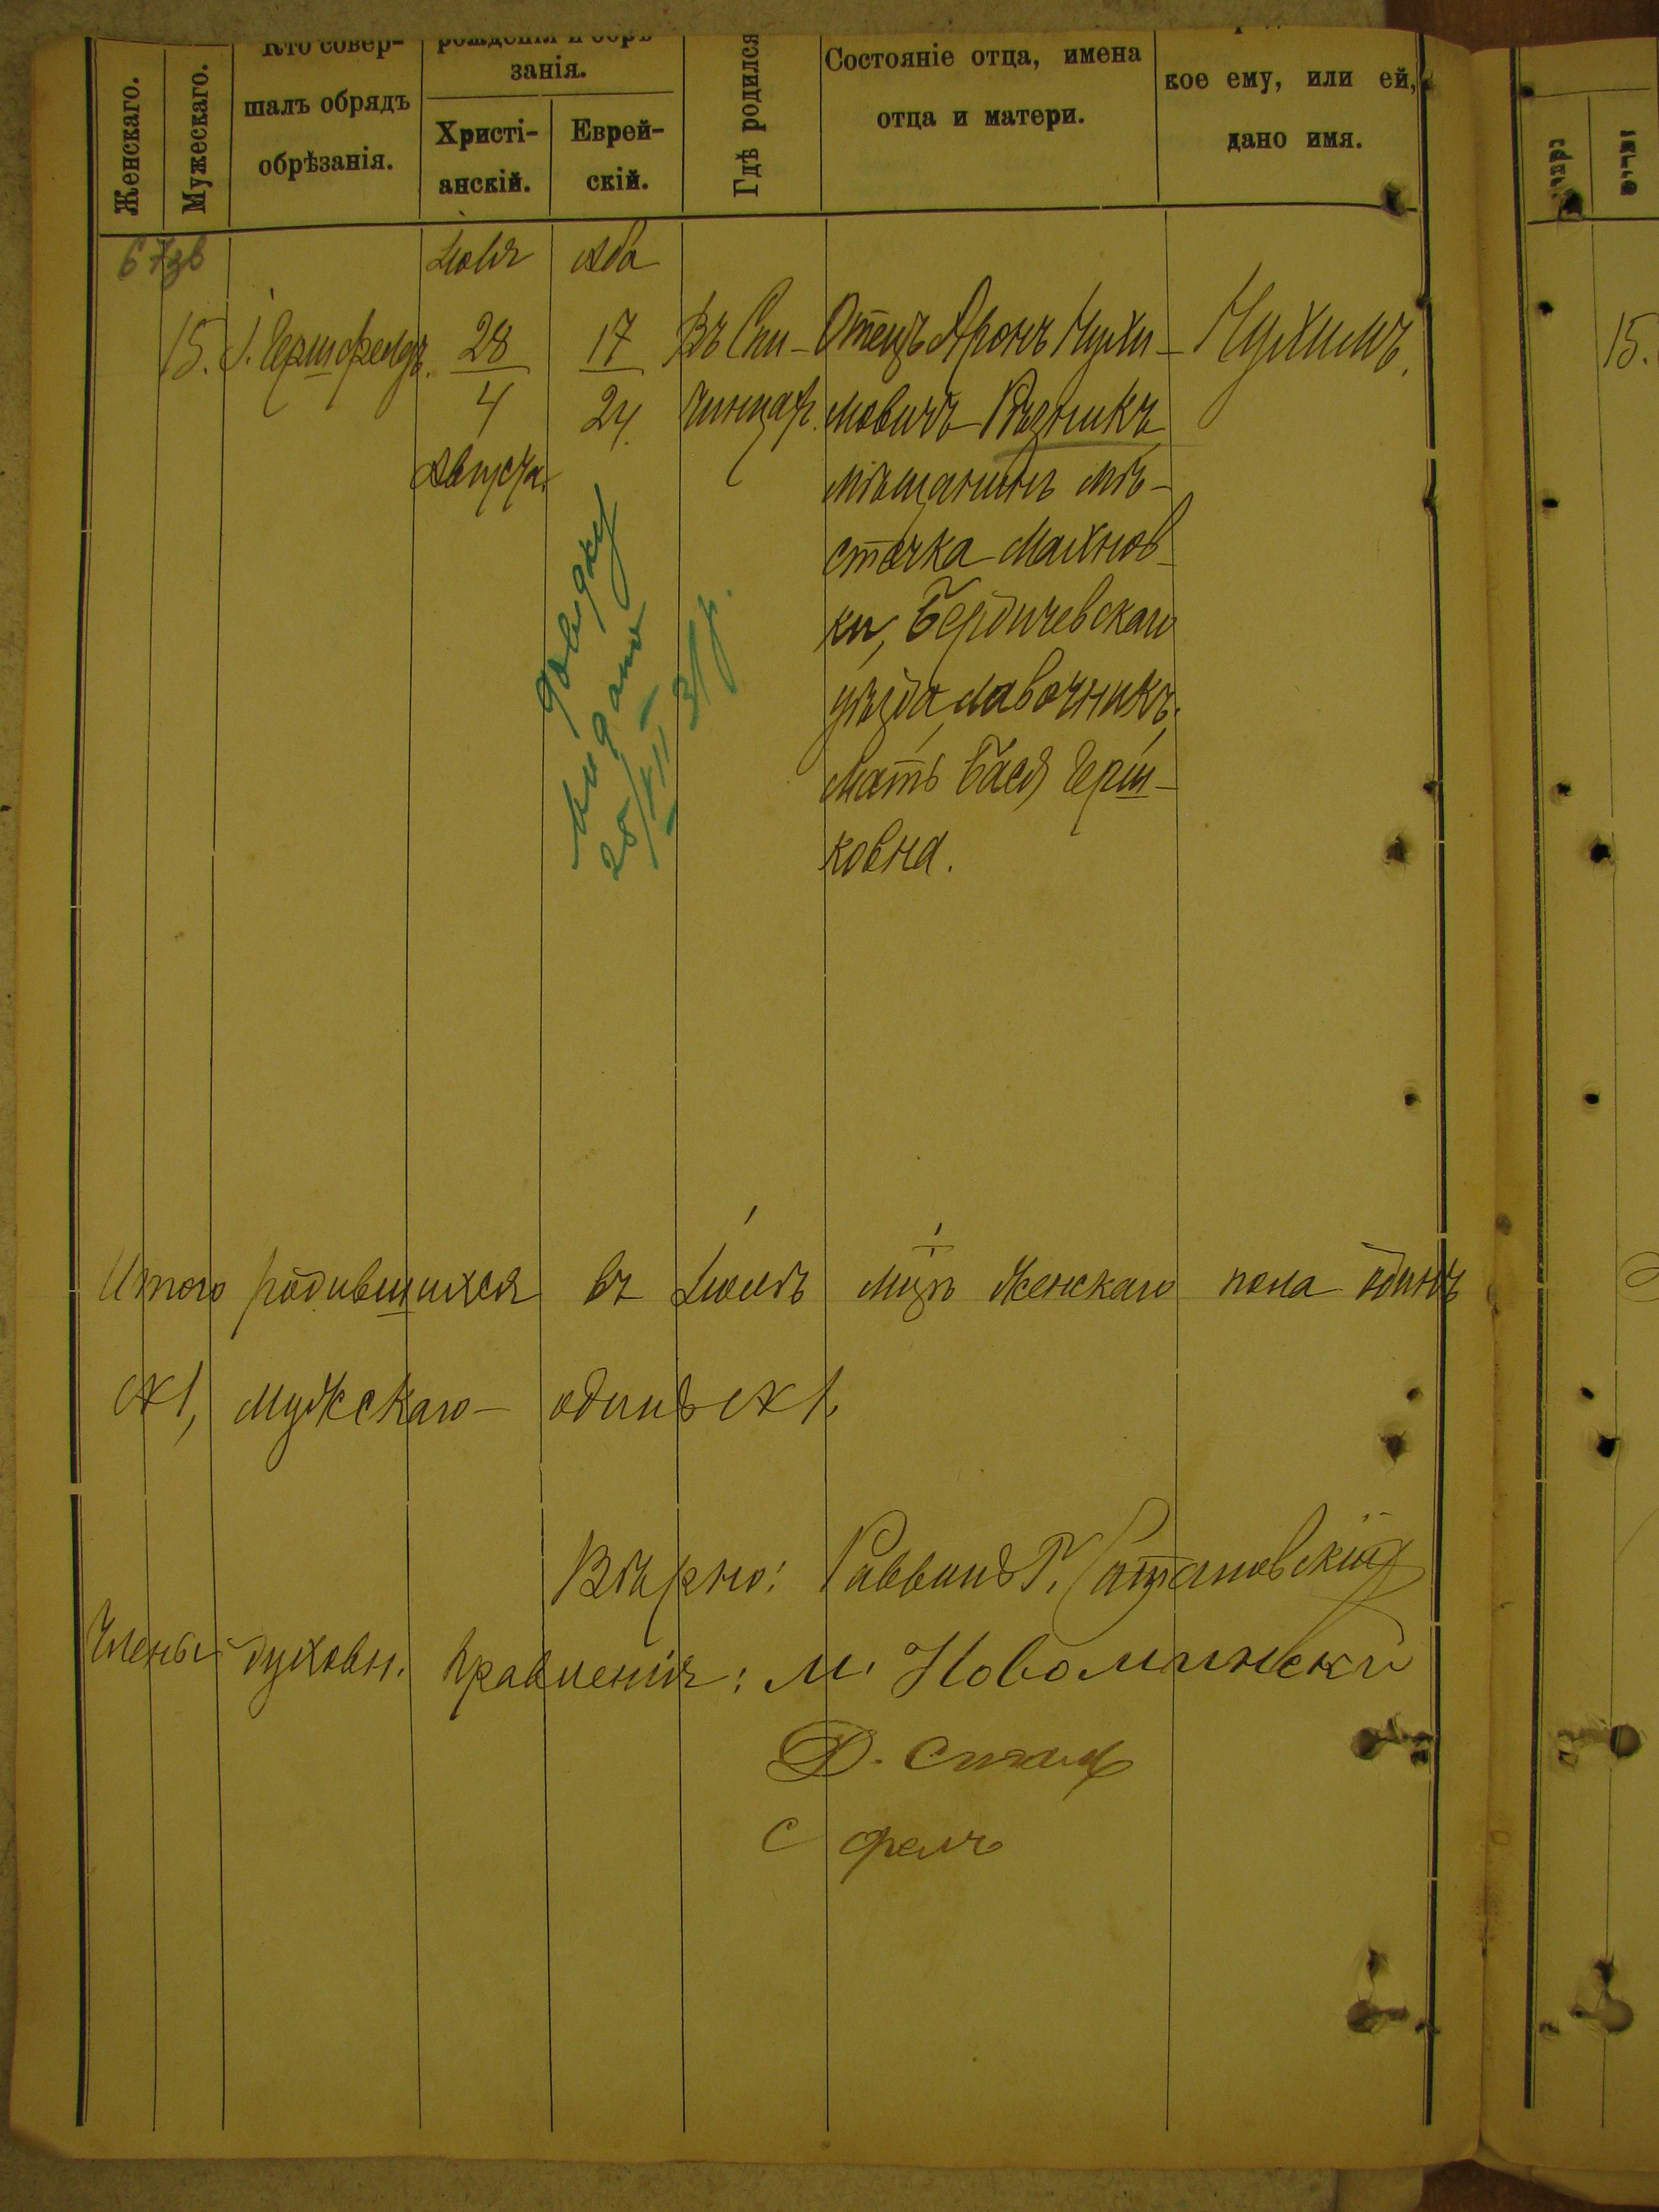 Женскаго.
Мужескаго.
Кто совер-
шалъ обрядъ
обрѣзанія.
рожденія и обрѣ-
занія.
Христі-
анскій.
Еврей-
скій.
Гдѣ родился
Состояніе отца, имена
отца и матери.
кое ему, или ей,
дано имя.
67зв
Іюля
Ава
15.
І. Герш фельдъ.
28
4
Августа.
17
24.
Въ Ски-
Отецъ Аронъ Нухи-
мовичъ Рѣзникъ
мѣщанинъ мѣ-
стечка Махнов-
ки, Бердичевскаго
уѣзда, лавочникъ,
Мать Бася Герш-
ковна.
Нухимъ.
довідку
видано
25/XII 31 р.
Итого родившихся въ Іюлѣ м-цѣ женскаго пола одинъ
№ 1, мужскаго - одинъ № 1.
Вѣрно: Раввинъ Г. Сатановскій
Члены духовн. правленія: М. Новомински
Д.
С
נקבי׳
זכרים
15.